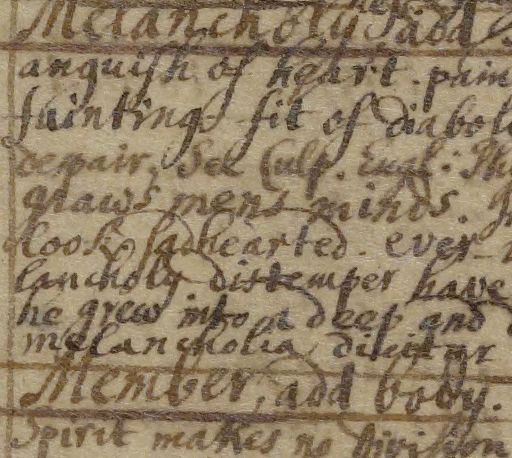 Melancholy, add
anguish of heart. pain
faintings fit of diabol
depair. See Culp. Engl: Phy
gnaws mens minds.
look sadhearted. ever
lancholy distemper have
he grew into a deep and
melancholia dicitur
Member, add body.
Spirit makes no division